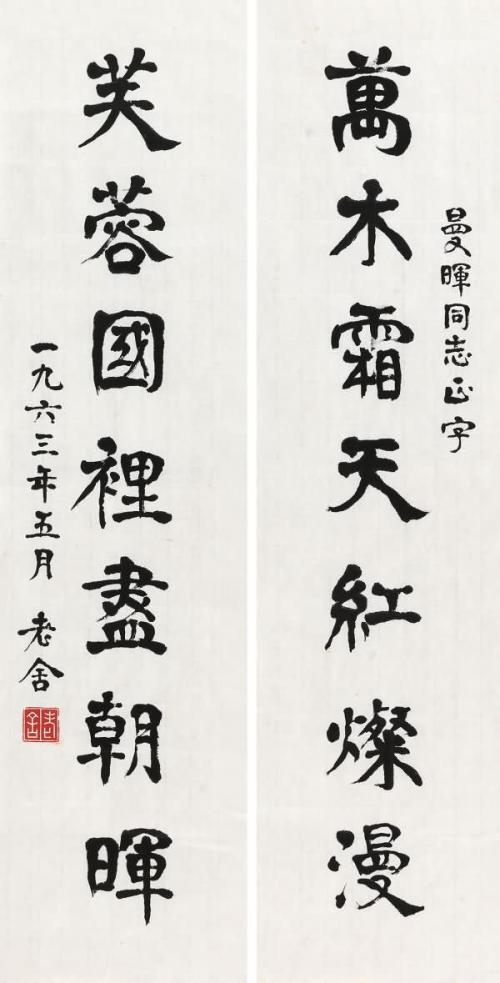 曼暉同志正字
萬木霜天紅燦漫
芙蓉國裡盡朝暉
一九六三年五月 老舍
老舍